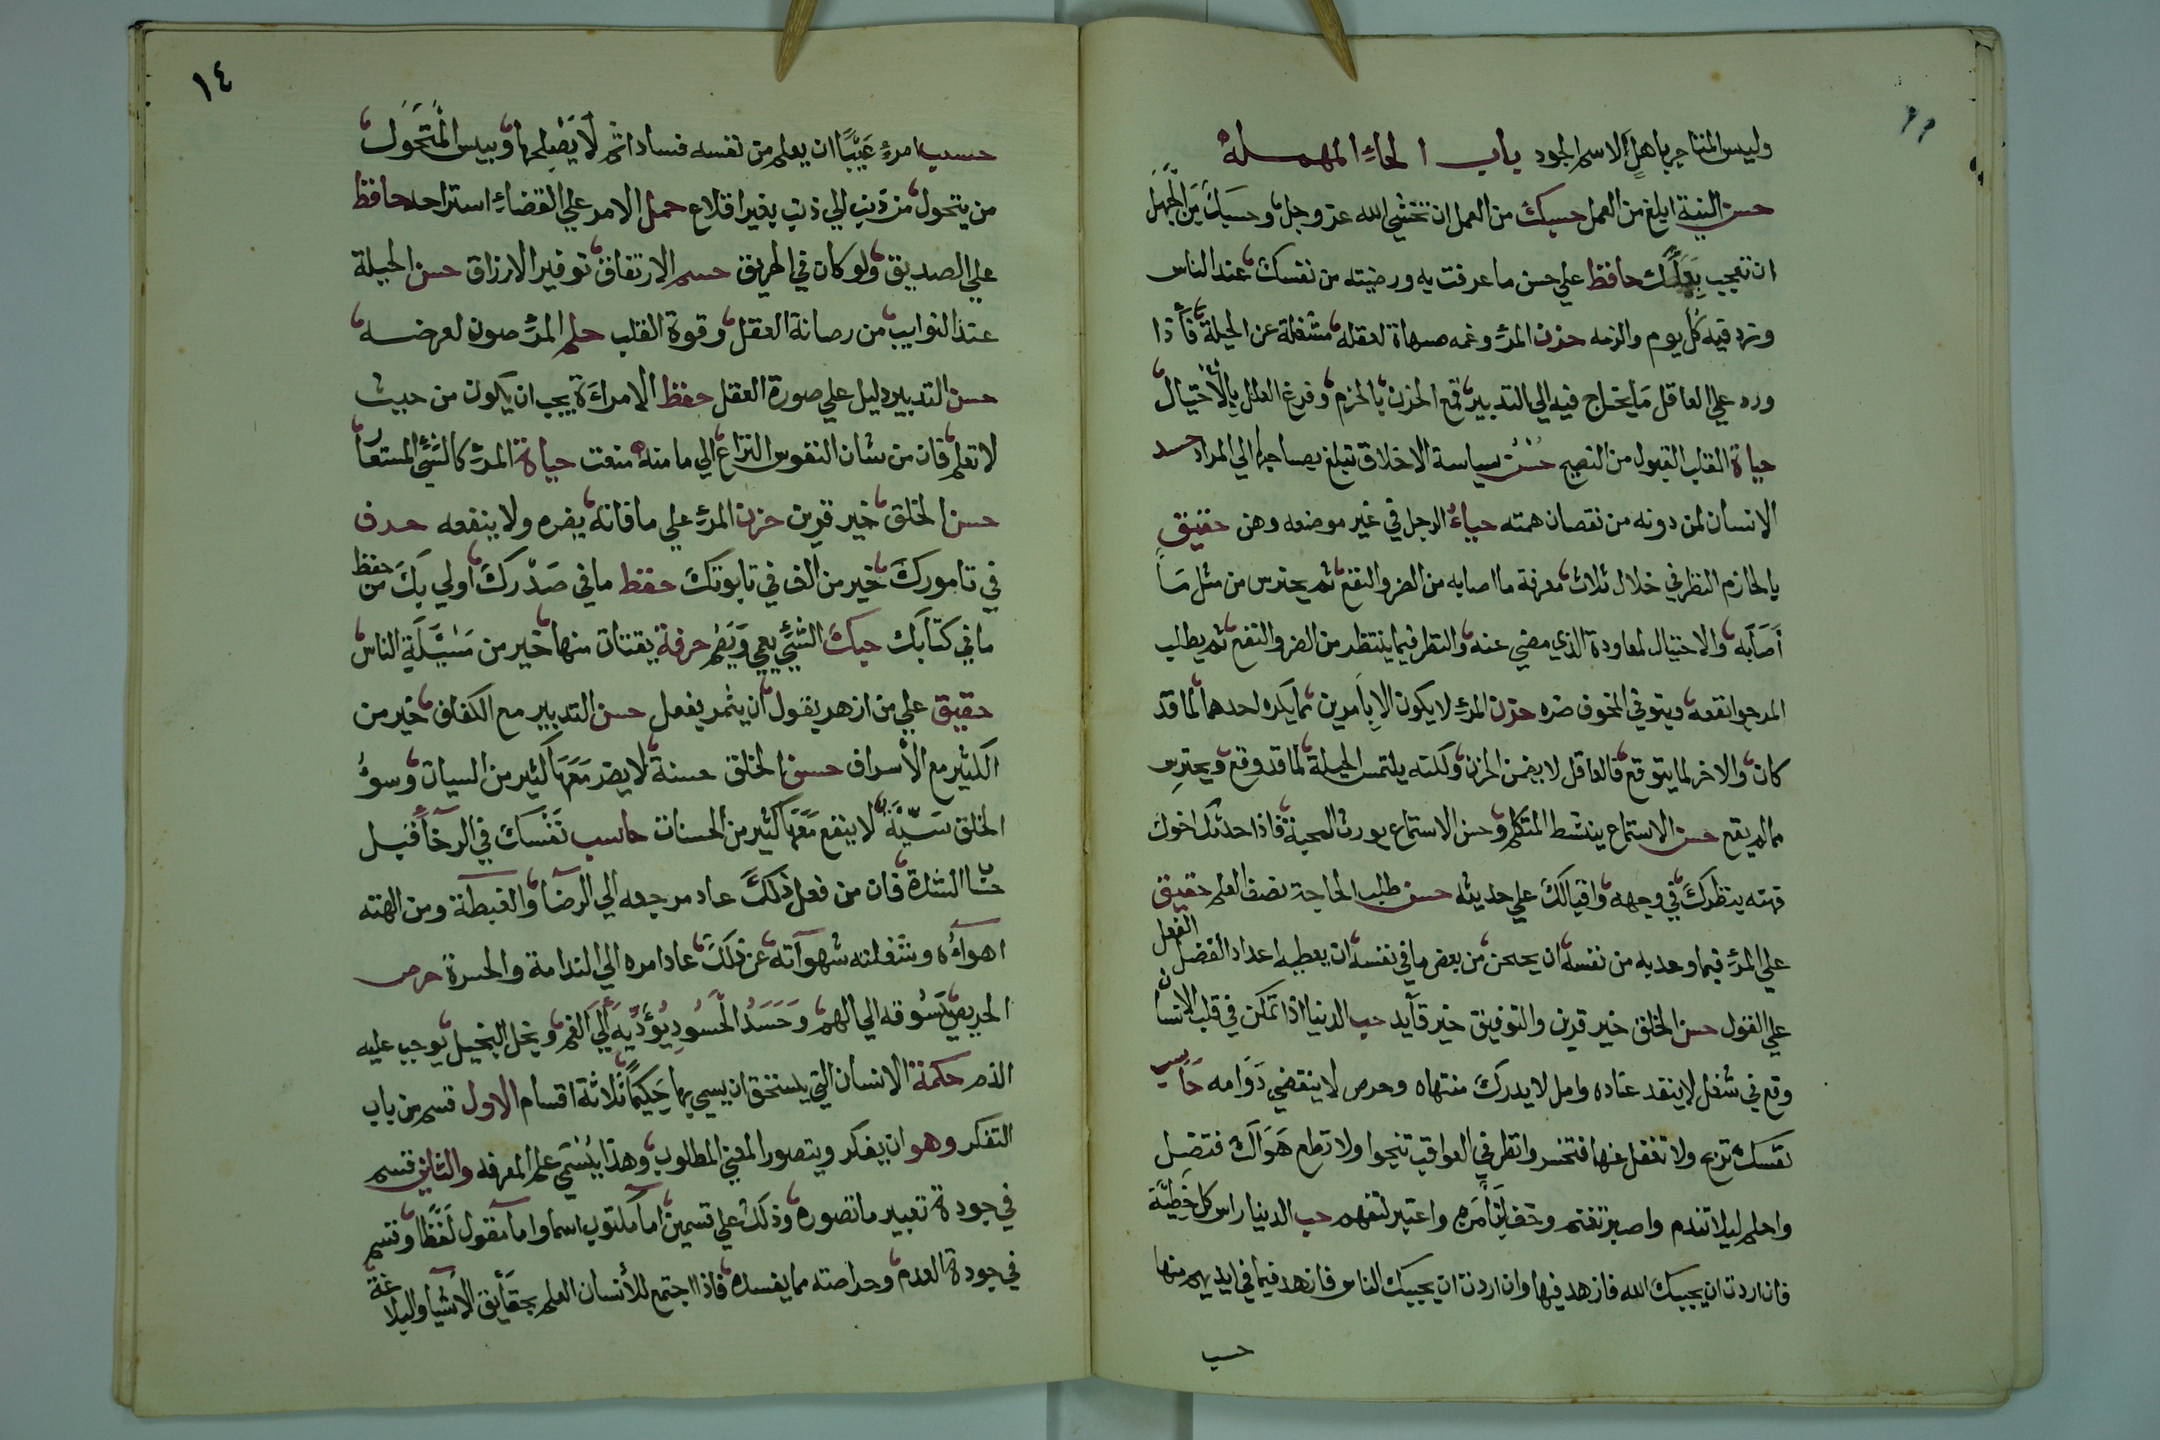 وليس المتاجر باهلٍ الاسم الجود باب الحاء المهمله
حسن النية ابلغ من العمل حسبك من العمل ان تخشي الله عز وجل وحسبك من الجهل
ان تعجب بعلمك حافظ علي حسن ما عرفت به ورضيته من نفسك عند الناس
وزد فيه كل يوم والزمه حزن المرء وغمه مسهاة لعقله مشغلة عن الحيلة فاذا
ورد علي العاقل ما يحتاج فيه الي التدبير قمع الحزن بالحزم وفرغ العقل بالاحتيال
حياة القلب القبول من النصيح حُسْن سياسة الاخلاق تبلغ بصاحبها الي المراد حسد
الانسان لمن دونه من نقصان همته حياءُ الرجل في غير موضعه وهن حقيق
بالحازم النظر في خلال ثلاث معرفة ما اصابه من الضر والنفع ثم يحترس من مثل ما
أصَابَه والاحتيال لمعاودة الذي مضي عنه والنظر فيما ينتظر من الضر والنفع ثم يطلب
المرجو انفعه ويتوقي المخوف ضره حزن المرء لا يكون الا بامرين مما يكره احدهما لما قد
كان والاخر لما يتوقع فالعاقل لا يضمن الحزن ولكنه يلتمس الحيلة لما قد وقع ويحترس
مما لم يقع حسن الاستماع ينشط المتكلم وحسن الاستماع يورث المحبة فاذا حدثك اخوك
فهبه ينظرك في وجهه واقبالك علي حديثه حسن طلب الحاجة نصف العلم حقيق
علي المرء فيما وعد به من نفسه ان يحتمن من بعض ما في نفسه ان يعطيه اعداد الفضل الفعل
علي القول حسن الخلق خير قرين والتوفيق خير قآيد حب الدنيا اذا تمكن في قلب الانسان
وقع في شغل لا ينفد عناده وامل لا يدرك منتهاه وحرص لا ينقضي دَوَامه حَاسب
نفسك تربح ولا تغفل عنها فتخسر وانظر في العواقب تنجوا ولا تطع هَوَآكَ فتضل
واحلم ليلا تندم واصبر تغنم وخف لتأمن واعتبر لتفهم حب الدنيا راس كل خطيئة
فان اردت ان يحببك الله فازهد فيها وان اردت ان يحببك الناس فازهد فيما في ايديهم منها
حسب
١٤
حسب امرءٍ عَيْبًا ان يعلم من نفسه فسادا ثم لَا يَصْلِحها وبيس المُتَحَوِّل
من يتحول من ذنب الي ذنب بغير اقلاع حمل الامر علي القضاء استراحه حافظ
علي الصديق ولو كان في الحريق حسم الارتفاق توفير الارزاق حسن الحيلة
عند النوايب من رصانة العقل وقوة القلب حلم المرء صون لعرضه
حسن التدبير دليل علي صورة العقل حفظ الامراءة يجب ان يكون من حيث
لا تعلم فان من شان النفوس النزاع الي ما منه منعت حياة المرء كالشيء المستعار
حسن الخلق خير قرين حزن المرء علي ما فاته يضره ولا ينفعه حرف
في تامورك خير من الف في تابوتك حفظ ما في صَدْرك اولي بكَ من حفظ
ما في كتابك حبك الشيء يعمي وَيَصُم حرفة يقتات منها خير من مَسْئَلَةِ الناس
حقيق علي من ازهر بقول ان يثمر بفعل حسن التدبير مع الكفاف خير من
الكثير مع الاسراف حسن الخلق حسنة لا يضر مَعَهَا كثير من السيات وسوُ
الخلق سَيِّئَة لا ينفع مَعَهَا كثير من الحسنات حاسب نَفْسك في الرخآء قبل
حساب الشدة فان من فعل ذلك عاد مرجعه الي الرضَا والغبطة ومن الهته
اهوآءُه وشغلته شهوَآته عن ذَلكَ عاد امره الي الندامة والحسرة حرص
الحريص يَسُوقه الي الهم وحَسَدُ الحَسُودِ يُؤَدِّيه الي الغم وبخل البخيل يوجب عليه
الذم حكمة الانسان التي يستحق ان يسمي بها حَكِيمًا ثلاثة اقسام الاول قسم من باب
التفكر وهو ان يفكر ويتصور المعني المطلوب وهذا يُسَمي علم المعرفه والثاني قسم
في جودة تعبير ما تصوره وذلك علي قسمين اما مكتوب اسما واما مقول لَفْظًا وقسم
في جودة العدم وحراصته مما يفسده فاذا اجتمع للأنسان العلم بحقَآيق الأشيآ والبلاغة